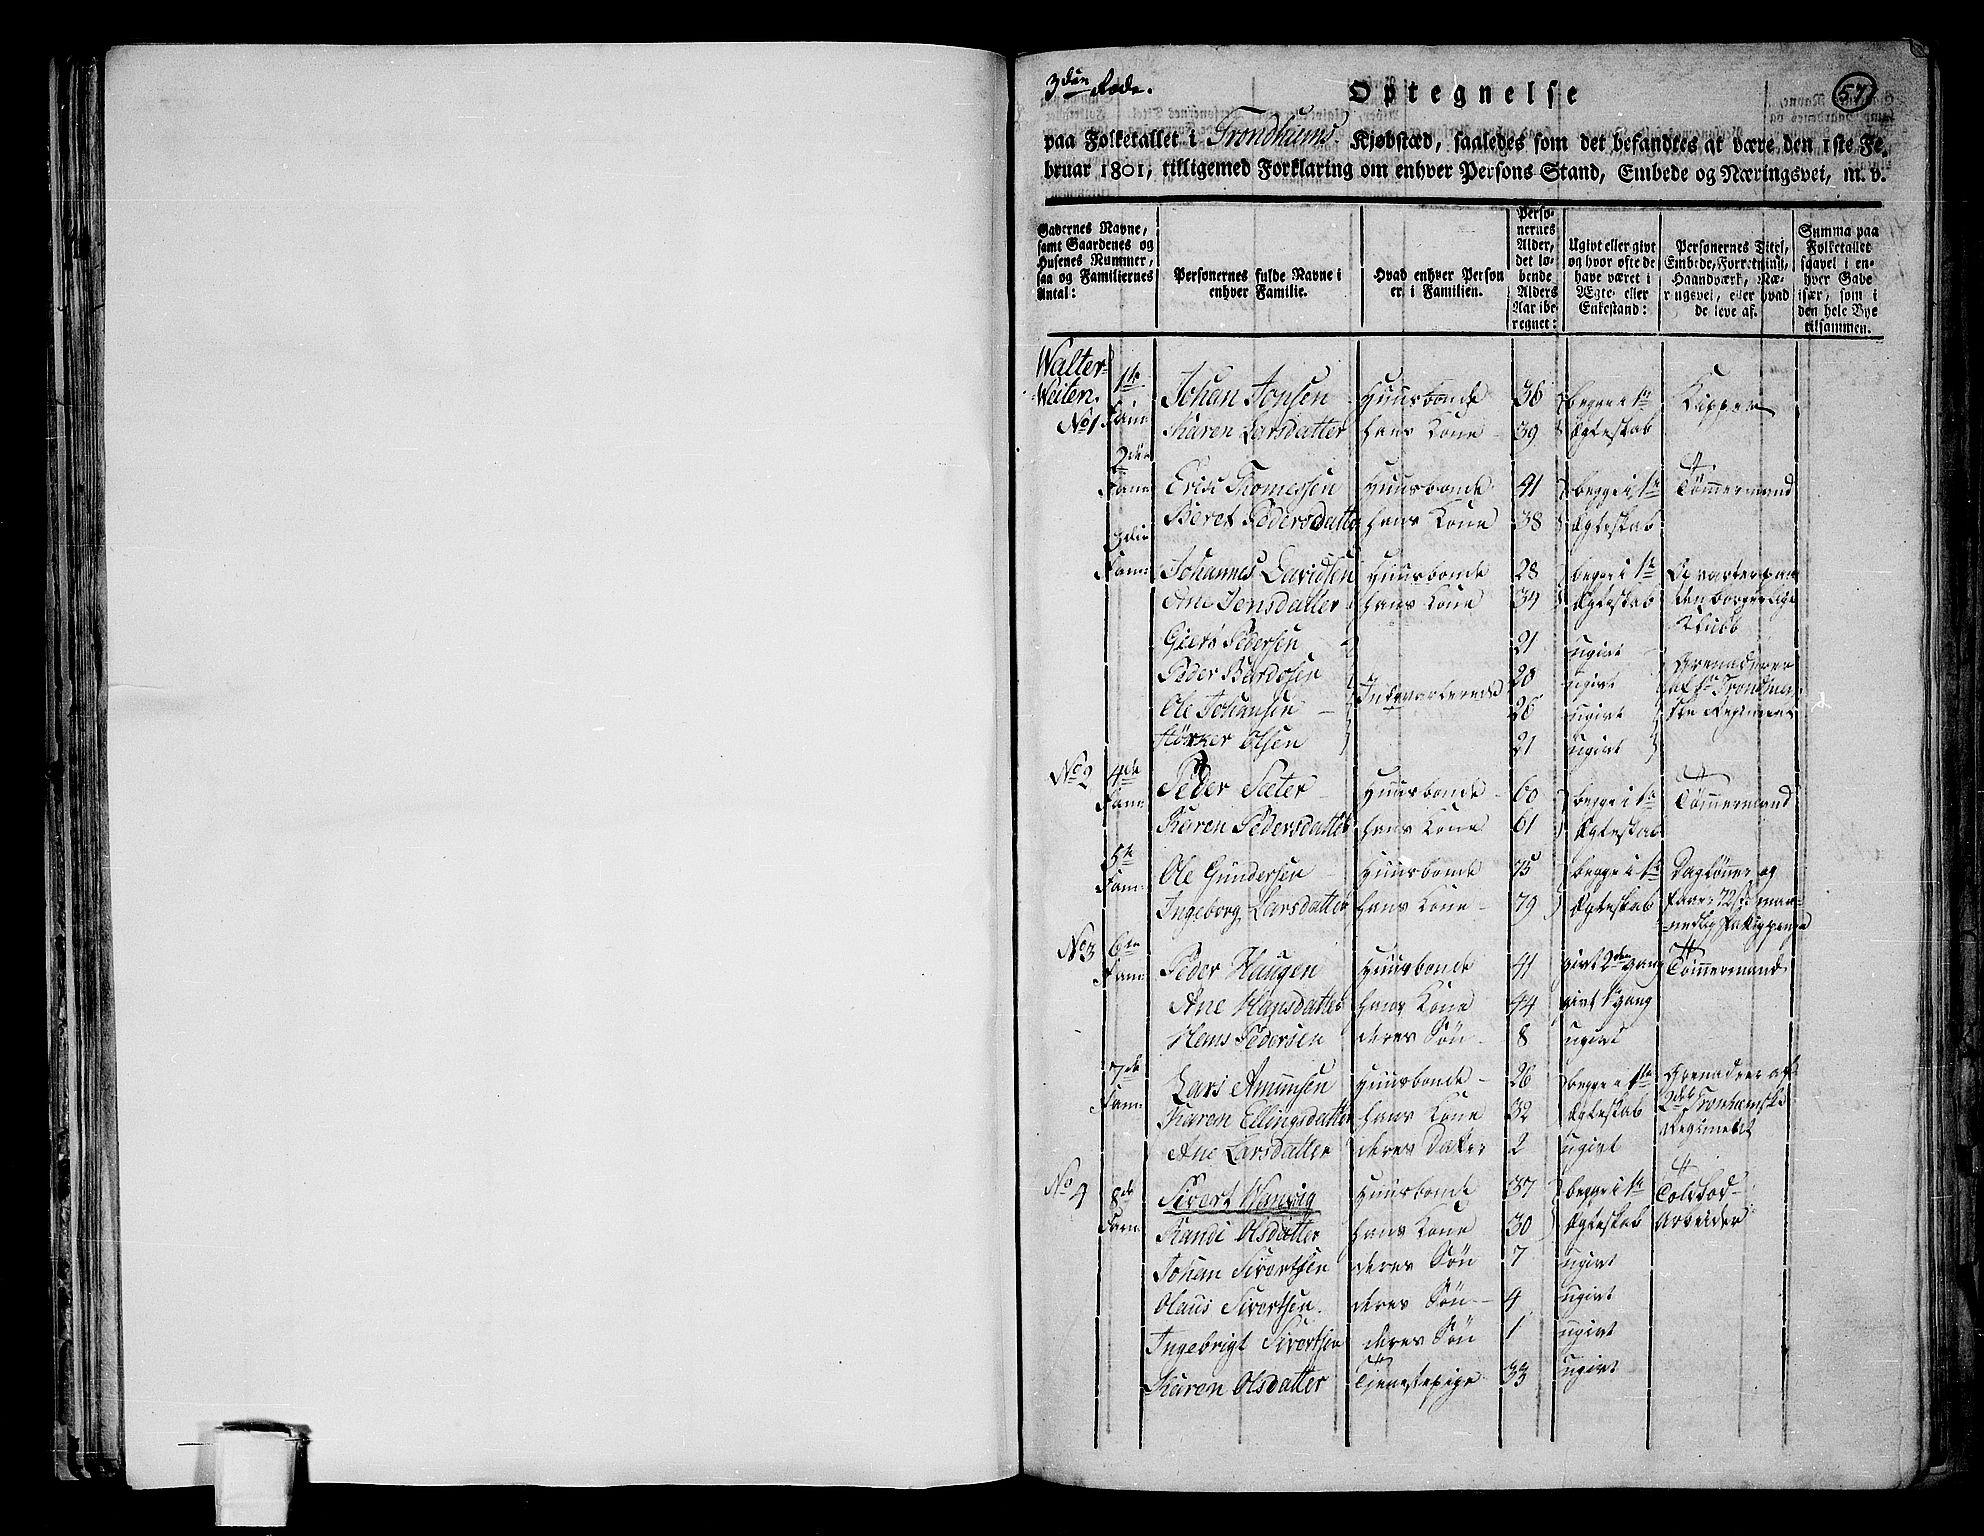 3den Rode.
57
Optegnelse
paa Folketallet i Trondhiems Kjøbstæd, saaledes som det befandtes at være den 1ste Fe-
bruar 1801, tilligemed Forklaring om enhver Persons Stand, Embede og Næringsvei, m. v.
Gadernes Navne, samt Gaardenes og Husenes Nummer, saa og Familiernes Antal:
Personernes fulde Navne i enhver Familie.
Hvad enhver Person er i Familien.
Personernes Alder, det løbende Alders Aar iberegnet:
Ugivt eller givt og hvor ofte de have været i Ægte- eller Enkestand:
Personernes Titel, Embede, Forretning, Haandværk, Næringsvei, eller hvad de leve af.
Summa paa Folketallet saavel i enhver Gade især, som i den hele Bye tilsammen.
Walter-
Weiten. 1te Johan Jonsen Huusbonde 36 begge i 1te Kipper
No 1 Fam: Karen Larsdatter hans Kone 39 Ægteskab
2den
Fam: Erik Thomessen Huusbonde 41 begge i 1te Tømmermand
Beret Pedersdatter hans Kone 38 Ægteskab
3die
Fam: Johannes Davidsen Huusbonde 28 begge i 1te Opvarter paa
Ane Jensdatter hans Kone 34 Ægteskab den borgerlige
Klubb
Pedersen 21 ugivt
Peder 20 ugivt Grenaderer
Ole Johansen Indqvarterede 26 ugivt af 1te Trondhiem-
Størker Olsen 21 ugivt ske Regiment
No 2 4de Peder Sæter Huusbonde 60 begge i 1te Tømmermand
Fam: Karen Pedersdatter hans Kone 61 Ægteskab
5te Ole Gundersen Huusbonde 75 begge i 1te Dagløner og
Fam: Ingeborg Larsdatter hans Kone 79 Ægteskab faaer 72 s: maa-
nedlig
No 3 6te Peder Haugen Huusbonde 41 givt 2den gang Tømmermand
Fam: Ane Hansdatter hans Kone 44 givt 1te gang
Hans Pedersen deres Søn 8 ugivt
7de Lars Amunsen Huusbonde 26 begge i 1te Grenadeer af
Fam: Karen Ellingsdatter hans Kone 32 Ægteskab 2det Tronhiemske
Ane Larsdatter deres Datter 2 ugivt Regimet
No 4 8de Sivert Wanvig Huusbonde 37 begge i 1te Tolbod-
Fam: Randi Olsdatter hans Kone 30 Ægteskab Arbeider
Johan Sivertsen deres Søn 7 ugivt
Olaus Sivertsen deres Søn 4 ugivt
Ingebrigt Sivertsen deres Søn 1 ugivt
Karen Olsdatter Tjenestepige 33 ugivt